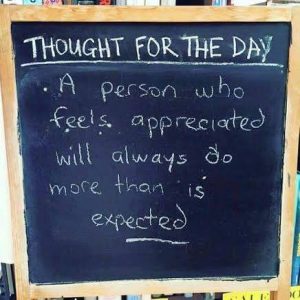 THOUGHT FOR THE DAY
. A person who
feels appreciated
will always do
more than is
expected